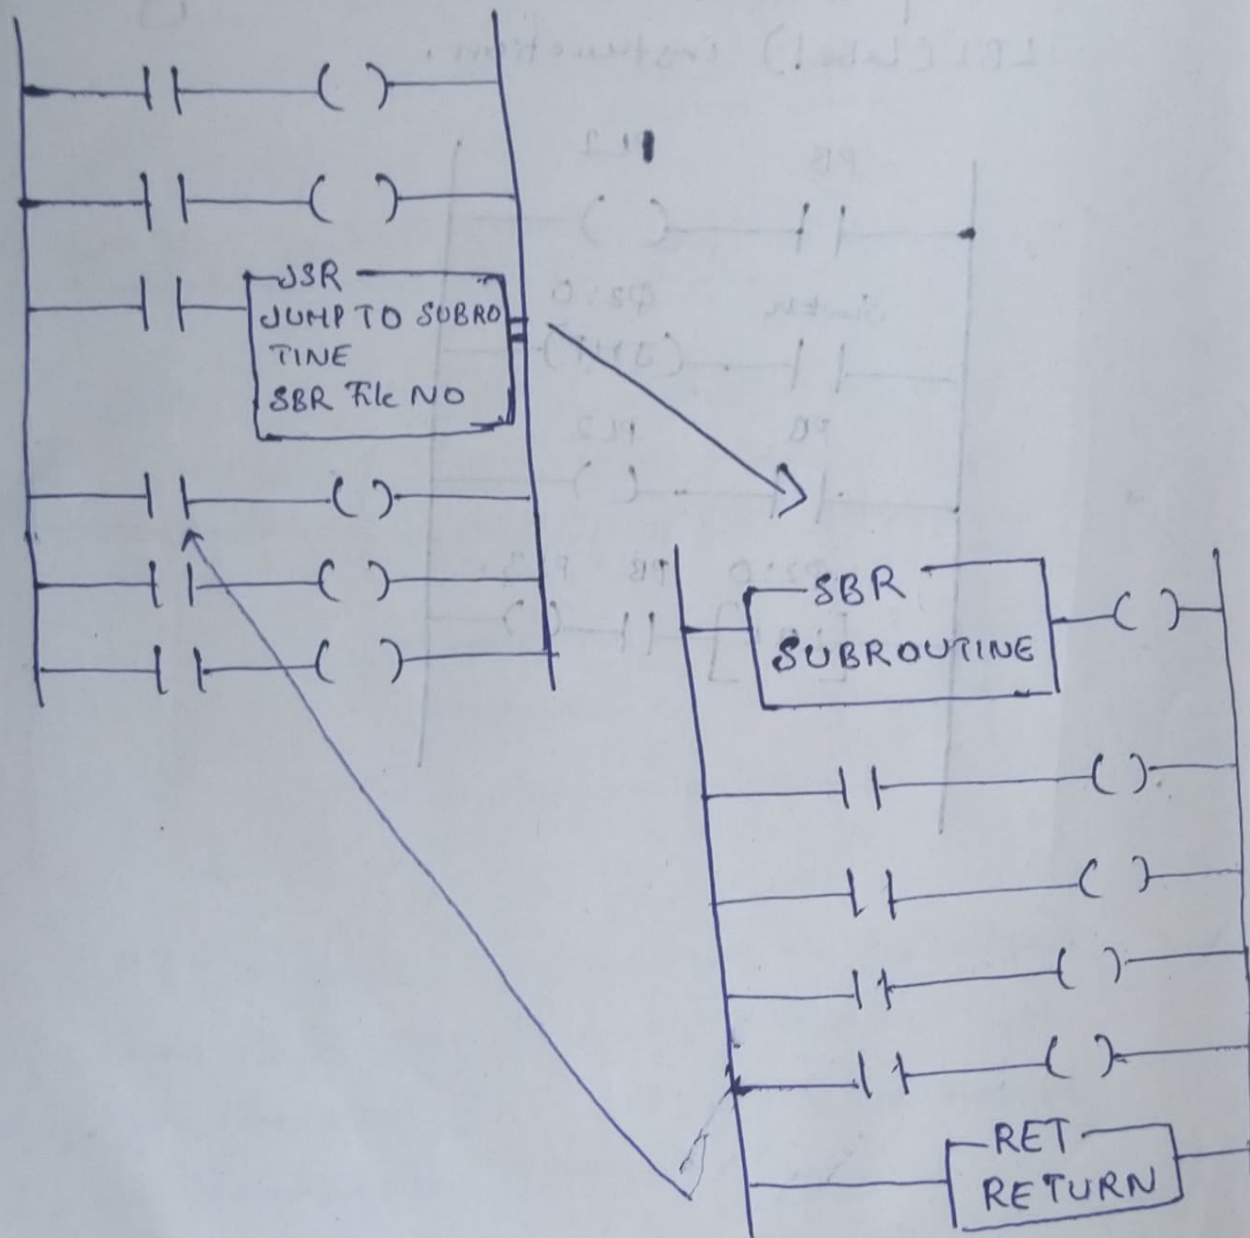 JSR
JUMP TO SUBRO
TINE
SBR File NO
SBR
SUBROUTINE
RET
RETURN